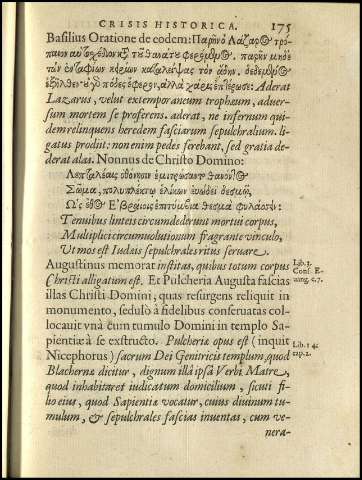 CRISIS HISTORICA. 175
Basilius Oratione de eodem: Παρῆν ὁ Λάζαρος τρό-
παιον αὐτοχθόνιον τοῦ θανάτου φερόμενος. παρῆν μηδὲ
τῶν ἐνταφίων
ἐξῆλθεν· οὐ πόδες ἔφερον, ἀλλὰ χάρις ἐπτέρωσε: Aderat
Lazarus, velut extemporaneum trophæum, adver-
sum mortem se proferens. aderat, ne infernum qui-
dem relinquens heredem fasciarum sepulchralium.
ligatus prodiit: non enim pedes ferebant, sed gratia de-
derat alas. Nonnus de Christo Domino:
Λεπταλέαις ὀθόνῃσιν ἐμιτρώσαντο θανόντος
Σῶμα, πολυπλέκτῳ ἑλίκων εὐώδεϊ δεσμῷ,
Ὡς ἔθος Ἑβραίοις ἐπιτύμβια θεσμὰ φυλάττειν:
Tenuibus linteis circumdederunt mortui corpus,
Multiplici circumvolutionum fragrante vinculo,
Ut mos est Iudæis sepulchrales ritus servare.
Augustinus memorat institas, quibus totum corpus
Christi alligatum est. Et Pulcheria Augusta fascias
illas Christi Domini, quas resurgens reliquit in
monumento, sedulò à fidelibus conseruatas col-
locauit vnà cum tumulo Domini in templo Sa-
pientiæ à se exstructo. Pulcheriæ opus est (inquit
Nicephorus) sacrum Dei Genitricis templum, quod
Blachernæ dicitur, dignum illâ ipsâ Verbi Matre,
quod inhabitaret iudicatum domicilium, sicuti fi-
lio eius, quod Sapientiæ vocatur, cuius divinum tu-
mulum, & sepulchrales fascias inventas, cum ve-
nera-
Lib. 3.
Cons. E-
uang. c.
Lib. 14.
cap. 2.